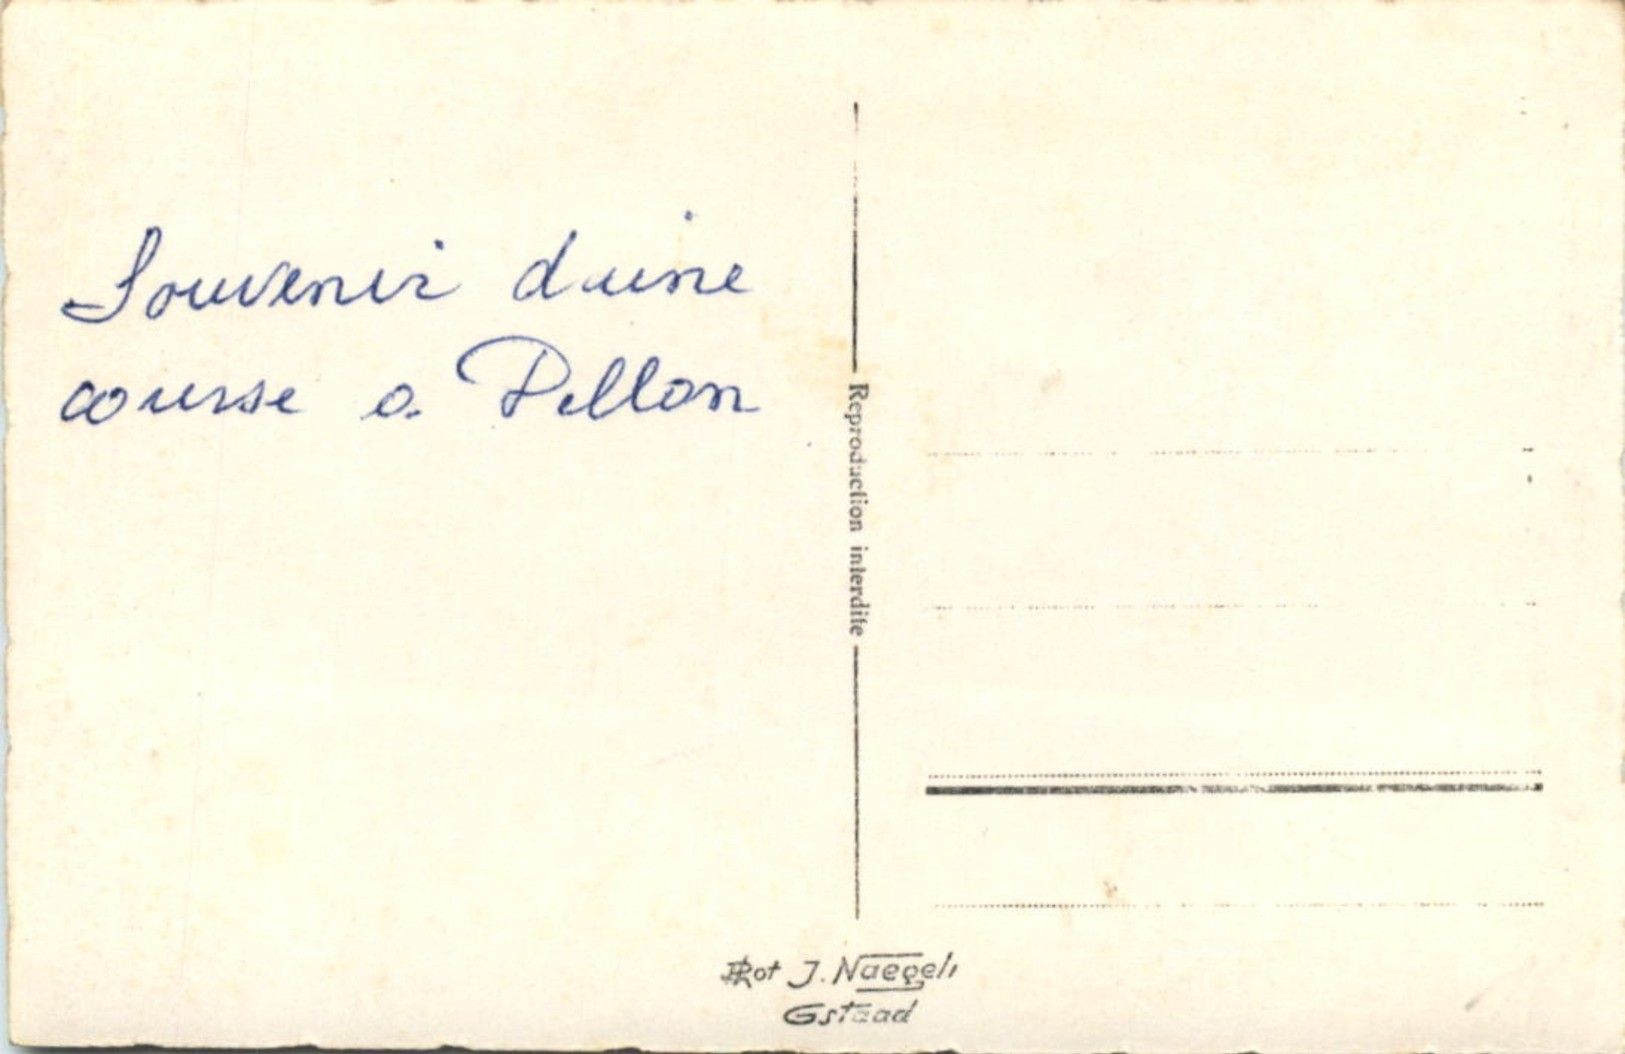 Souvenir d'une
course a Pillon
Reproduction interdite
Phot J. Naegeli
Gstaad